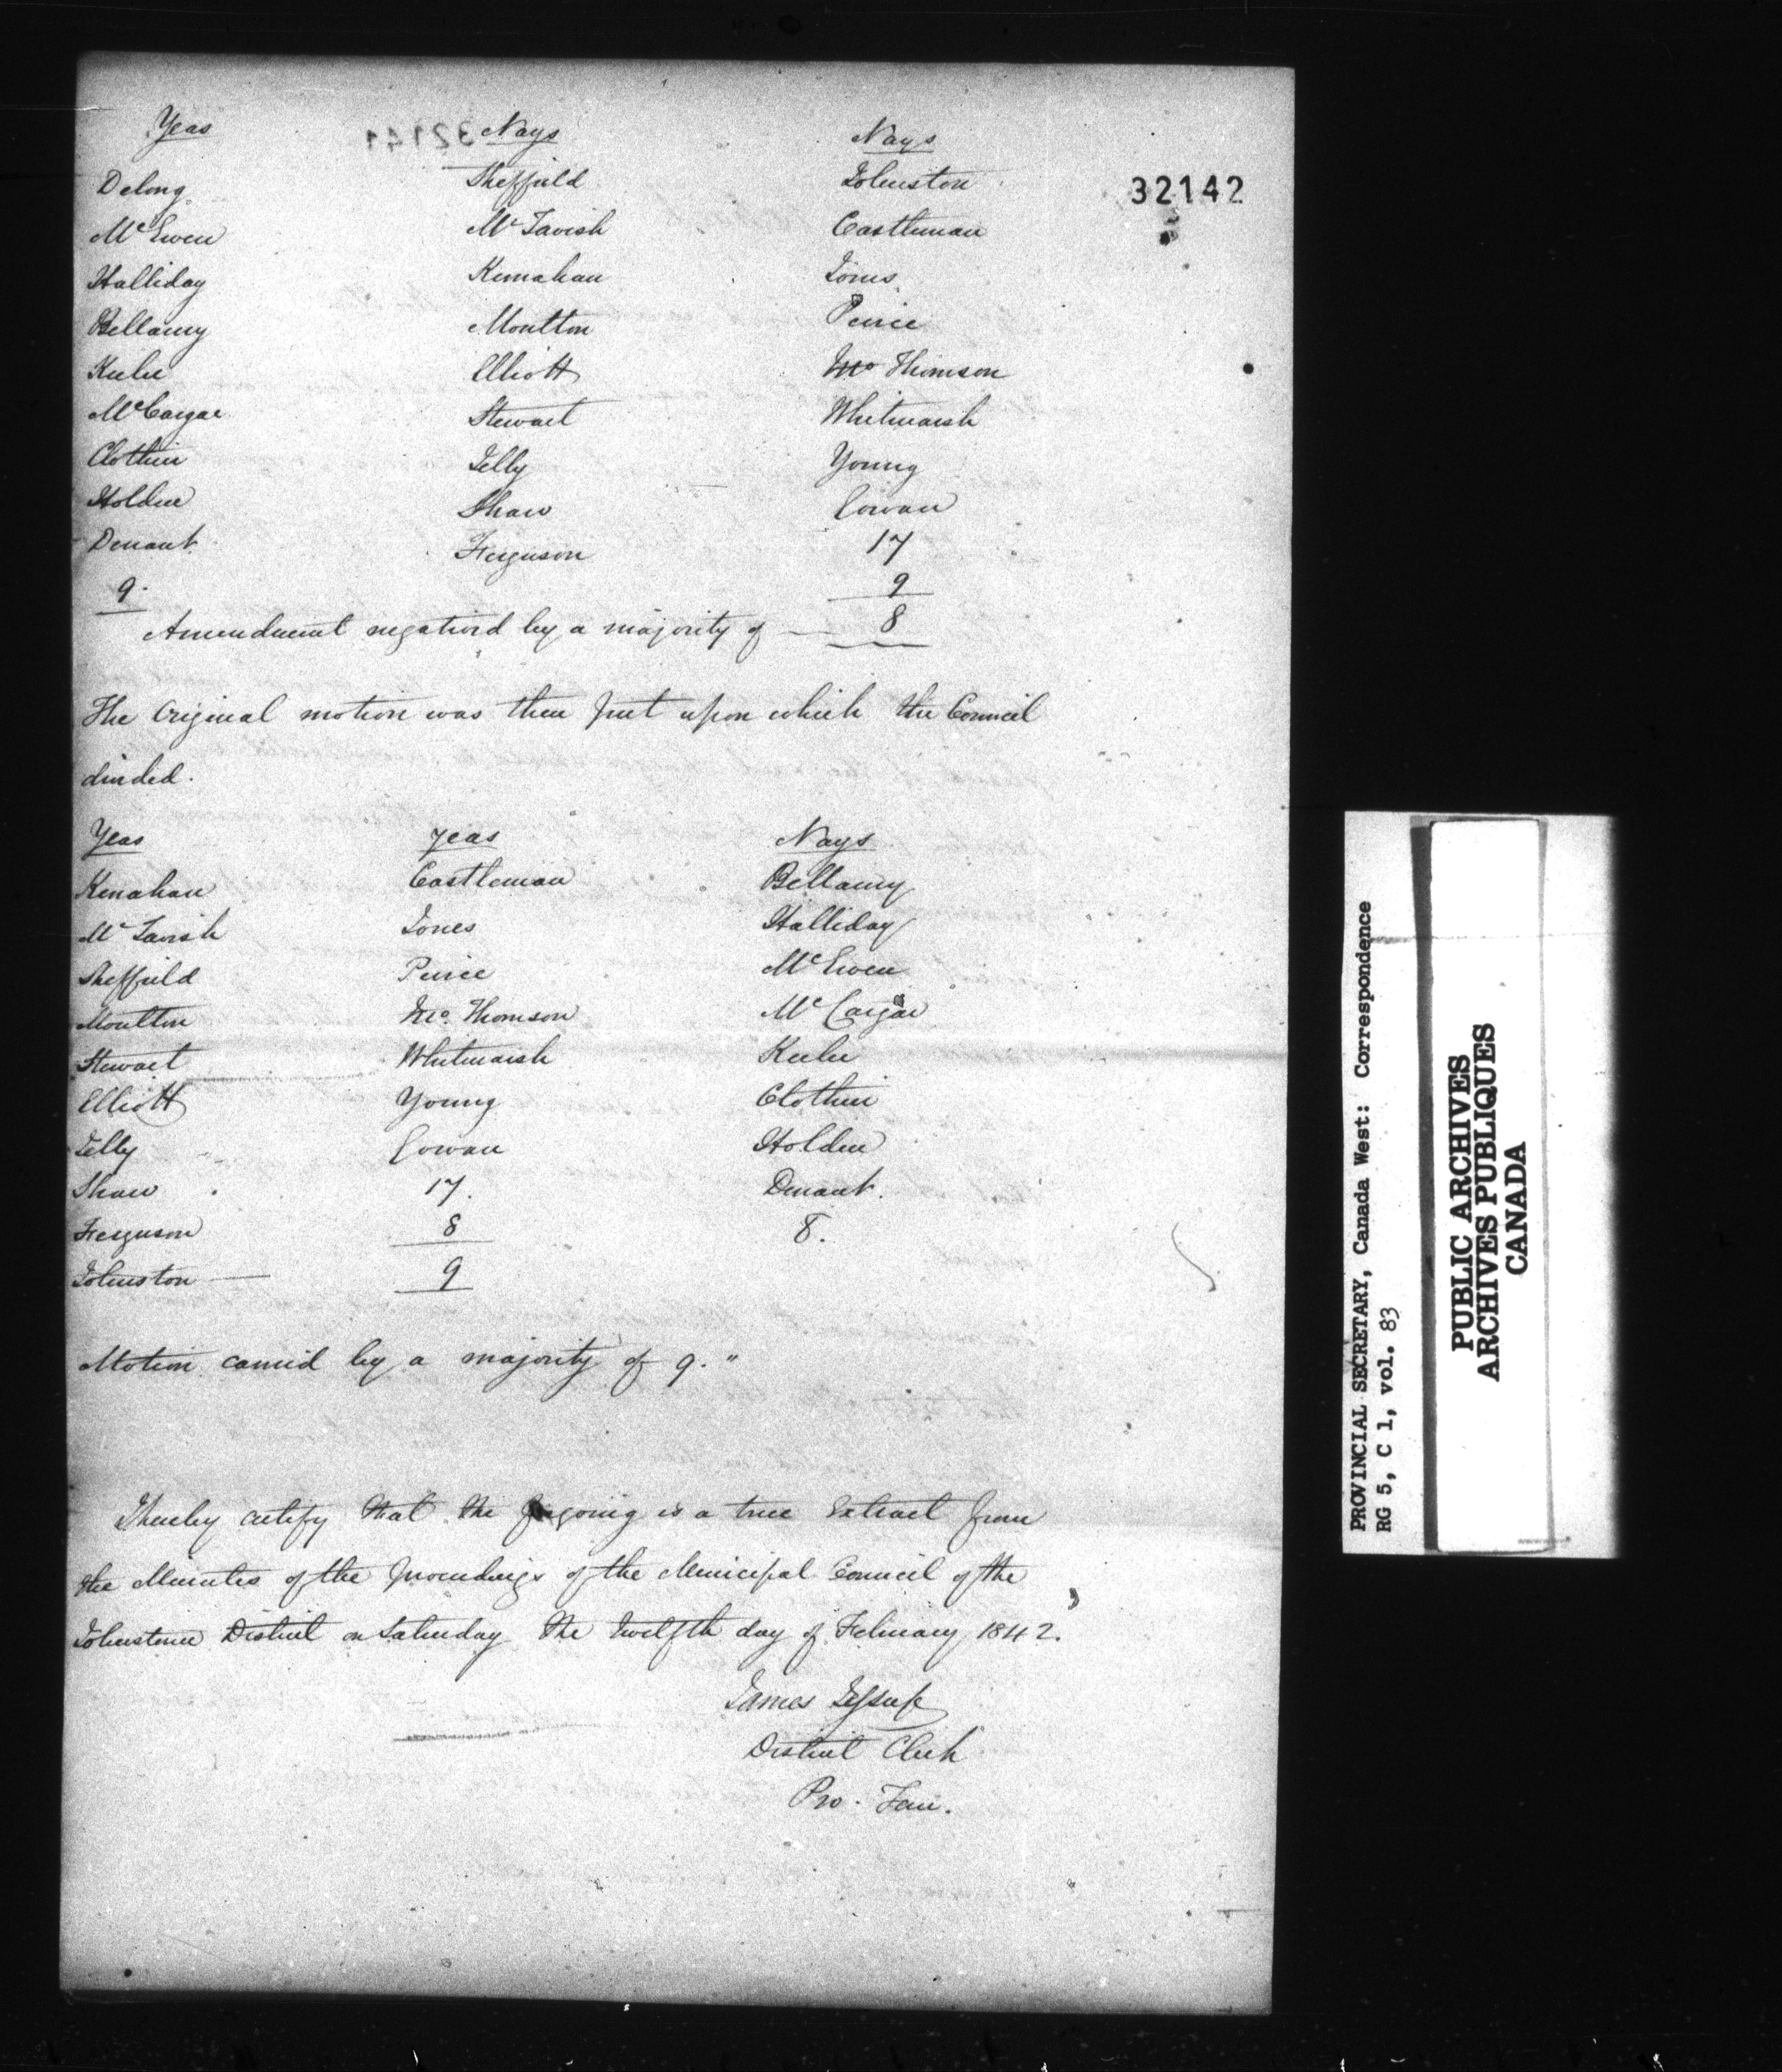 Yeas Nays Nays
32142
Delong Sheffield Johnston
McEwen McTavish Castleman
Halliday Kernahan Jones
Bellamy Moulton Peirce
Keeler Elliott Thomson
McCargar Stewart Whitmarsh
Clothier Jelly Young
Holden Shaw Cowan
Denaut Ferguson 17
9. 9
Amendment negatived by a majority of — 8
The original motion was then put upon which the Council
divided.
Yeas Yeas Nays
Kernahan Castleman Bellamy
McTavish Jones Halliday
Sheffield Peirce McEwen
Moulton Thomson McCargar
Stewart Whitmarsh Keeler
Elliott Young Clothier
Jelly Cowan Holden
Shaw 17. Denaut.
Ferguson 8 8.
Johnston — 9
Motion carried by a majority of 9."
I hereby certify that the foregoing is a true Extract from
the Minutes of the proceedings of the Municipal Council of the
Johnstown District on Saturday the twelfth day of February 1842.
James Jessup
District Clerk
Pro. Tem.
PROVINCIAL SECRETARY, Canada West: Correspondence
RG 5, C 1, vol. 83
PUBLIC ARCHIVES
ARCHIVES PUBLIQUES
CANADA